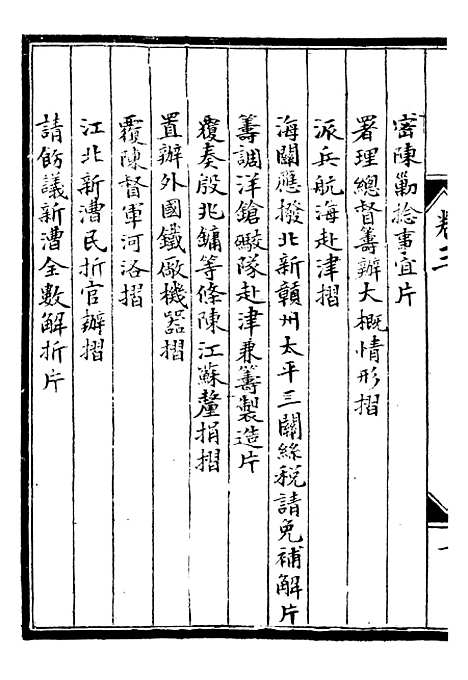 卷三
一
密陳勦捻事宜片
署理總督籌辦大概情形摺
派兵航海赴津摺
海關應撥北新贛州太平三關絲稅請免補解片
籌調洋鎗礮隊赴津兼籌製造片
覆奏殷兆鏞等條陳江蘇釐捐摺
置辦外國鐵廠機器摺
覆陳督軍河洛摺
江北新漕民折官辦摺
請飭議新漕全數解折片